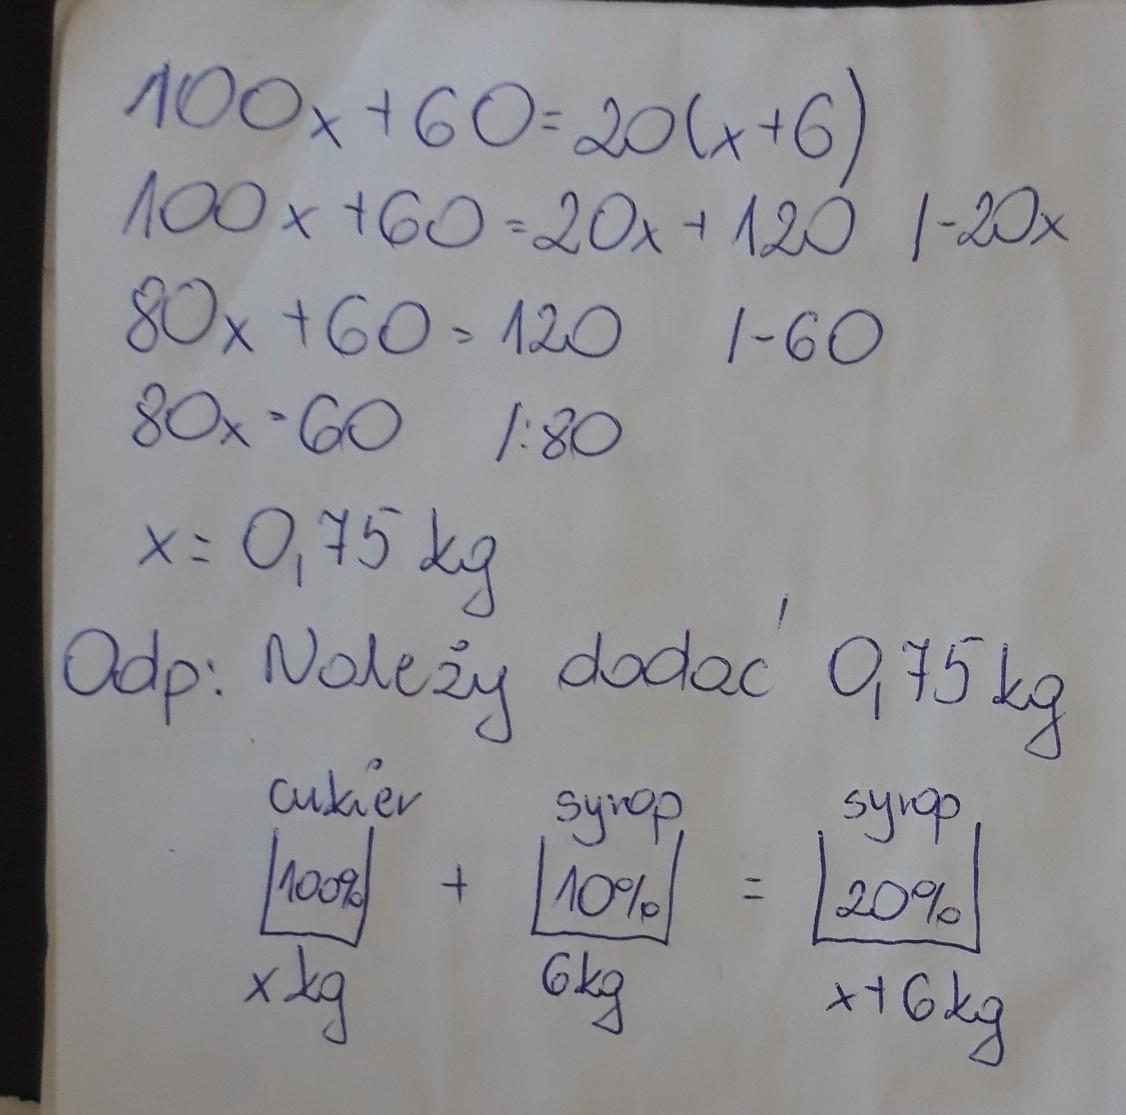 100x + 60 = 20(x+6)
100x + 60 = 20x + 120 /-20x
80x + 60 = 120 /-60
80x = 60 /:80
x = 0,75 kg
Odp: Należy dodać 0,75 kg
cukier syrop syrop
100% + 10% = 20%
x kg 6 kg x+6 kg